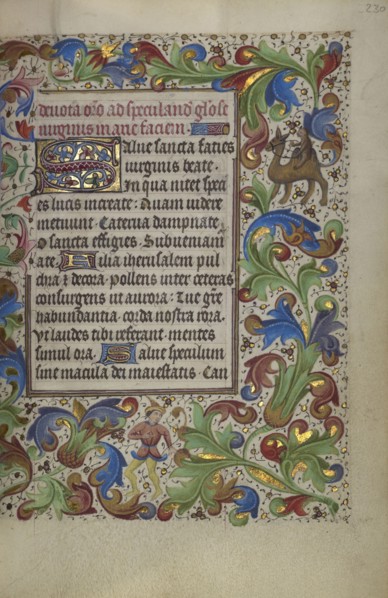 230
deuota oro ad speculand glose
uirginis marie faciem
Salue sancta facies
uirginis beate.
In qua nitet speci
es lucis increate. Quam uidere
metuunt. Caterua dampnate
o sancta effigies. Subueniam
a te. Filia iherusalem pul
chra & decora. pollens inter ceteras
consurgens ut aurora. Tue gre
habundantia. corda nostra rora.
Vt laudes tibi referant. mentes
simul ora. Salue speculum
sine macula dei maiestatis. Can